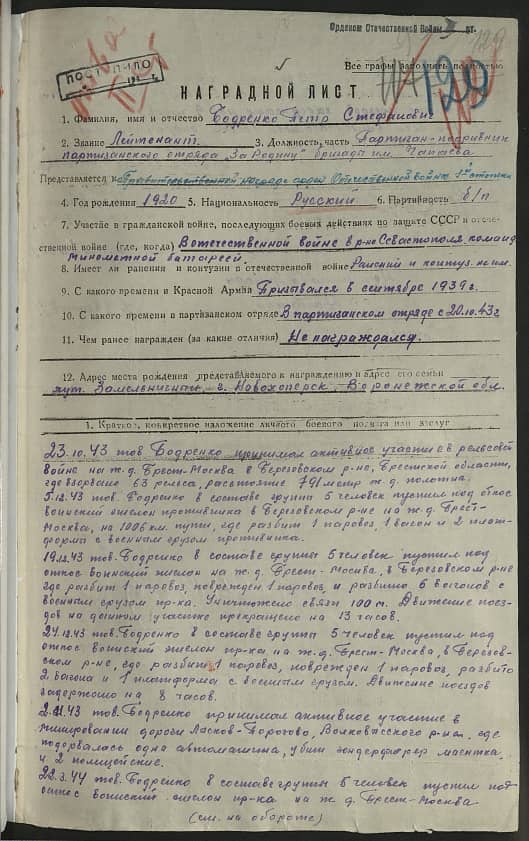 Орденом Отечественной Войны ст.
Все графы заполнять полностью
ПОСТУПИЛО
120
НАГРАДНОЙ ЛИСТ
1. Фамилия, имя и отчество Бодренко Петр Стефанович
2. Звание Лейтенант 3. Должность, часть Партизан-подрывник
партизанского отряда "За Родину" бригады им. Чапаева
Представляется к Правительственной награде орден Отечественной войны 1ой степени
4. Год рождения 1920 5. Национальность Русский 6. Партийность б/п
7. Участие в гражданской войне, последующих боевых действиях по защите СССР и отече-
ственной войне (где, когда) В отечественной войне в р-не Севастополя команд.
минометной батареей.
8. Имеет ли ранения и контузии в отечественной войне Ранений и контуз. не им.
9. С какого времени в Красной Армии Призывался в сентябре 1939 г.
10. С какого времени в партизанском отряде В партизанском отряде с 20.10.43 г
11. Чем ранее награжден (за какие отличия) Не награждался.
12. Адрес места рождения представляемого к награждению и адрес его семьи
г. Новохоперск, Воронежской обл.
1. Краткое, конкретное изложение личного боевого подвига или заслуг
23.10.43 тов. Бодренко принимал активное участие в рельсовой
войне на ж.д. Брест-Москва в Березовском р-не, Брестской области,
где взорвано 63 рельса, расстояние 791 метр ж.д. полотна.
5.12.43 тов. Бодренко в составе группы 5 человек пустил под откос
воинский эшелон противника в Березовском р-не на ж.д. Брест-
Москва, на 1006 км. пути, где разбит 1 паровоз, 1 вагон и 2 плат-
форма с военным грузом противника.
19.12.43 тов. Бодренко в составе группы 5 человек пустил под
откос воинский эшелон на ж.д. Брест-Москва, в Березовском р-не
где разбит 1 паровоз, поврежден 1 паровоз, и разбито 6 вагонов с
военным грузом пр-ка. Уничтожено связи 100 м. Движение поез-
дов на данном участке прекращено на 13 часов.
27.12.43 тов. Бодренко в составе группы 5 человек пустил под
откос воинский эшелон пр-ка на ж.д. Брест-Москва, в Березов-
ском р-не, где разбит 1 паровоз, поврежден 1 паровоз, разбито
2 вагона и 1 платформа с военным грузом. Движение поездов
задержано на 8 часов.
43 тов. Бодренко принимал активное участие в
минировании дороги р-на, где
подорвалась одна автомашина, убит зондерфюрер
и 2 полицейские.
22.3.44 тов. Бодренко в составе группы 5 человек пустил под
откос воинский эшелон пр-ка на ж.д. Брест-Москва
(см. на обороте)